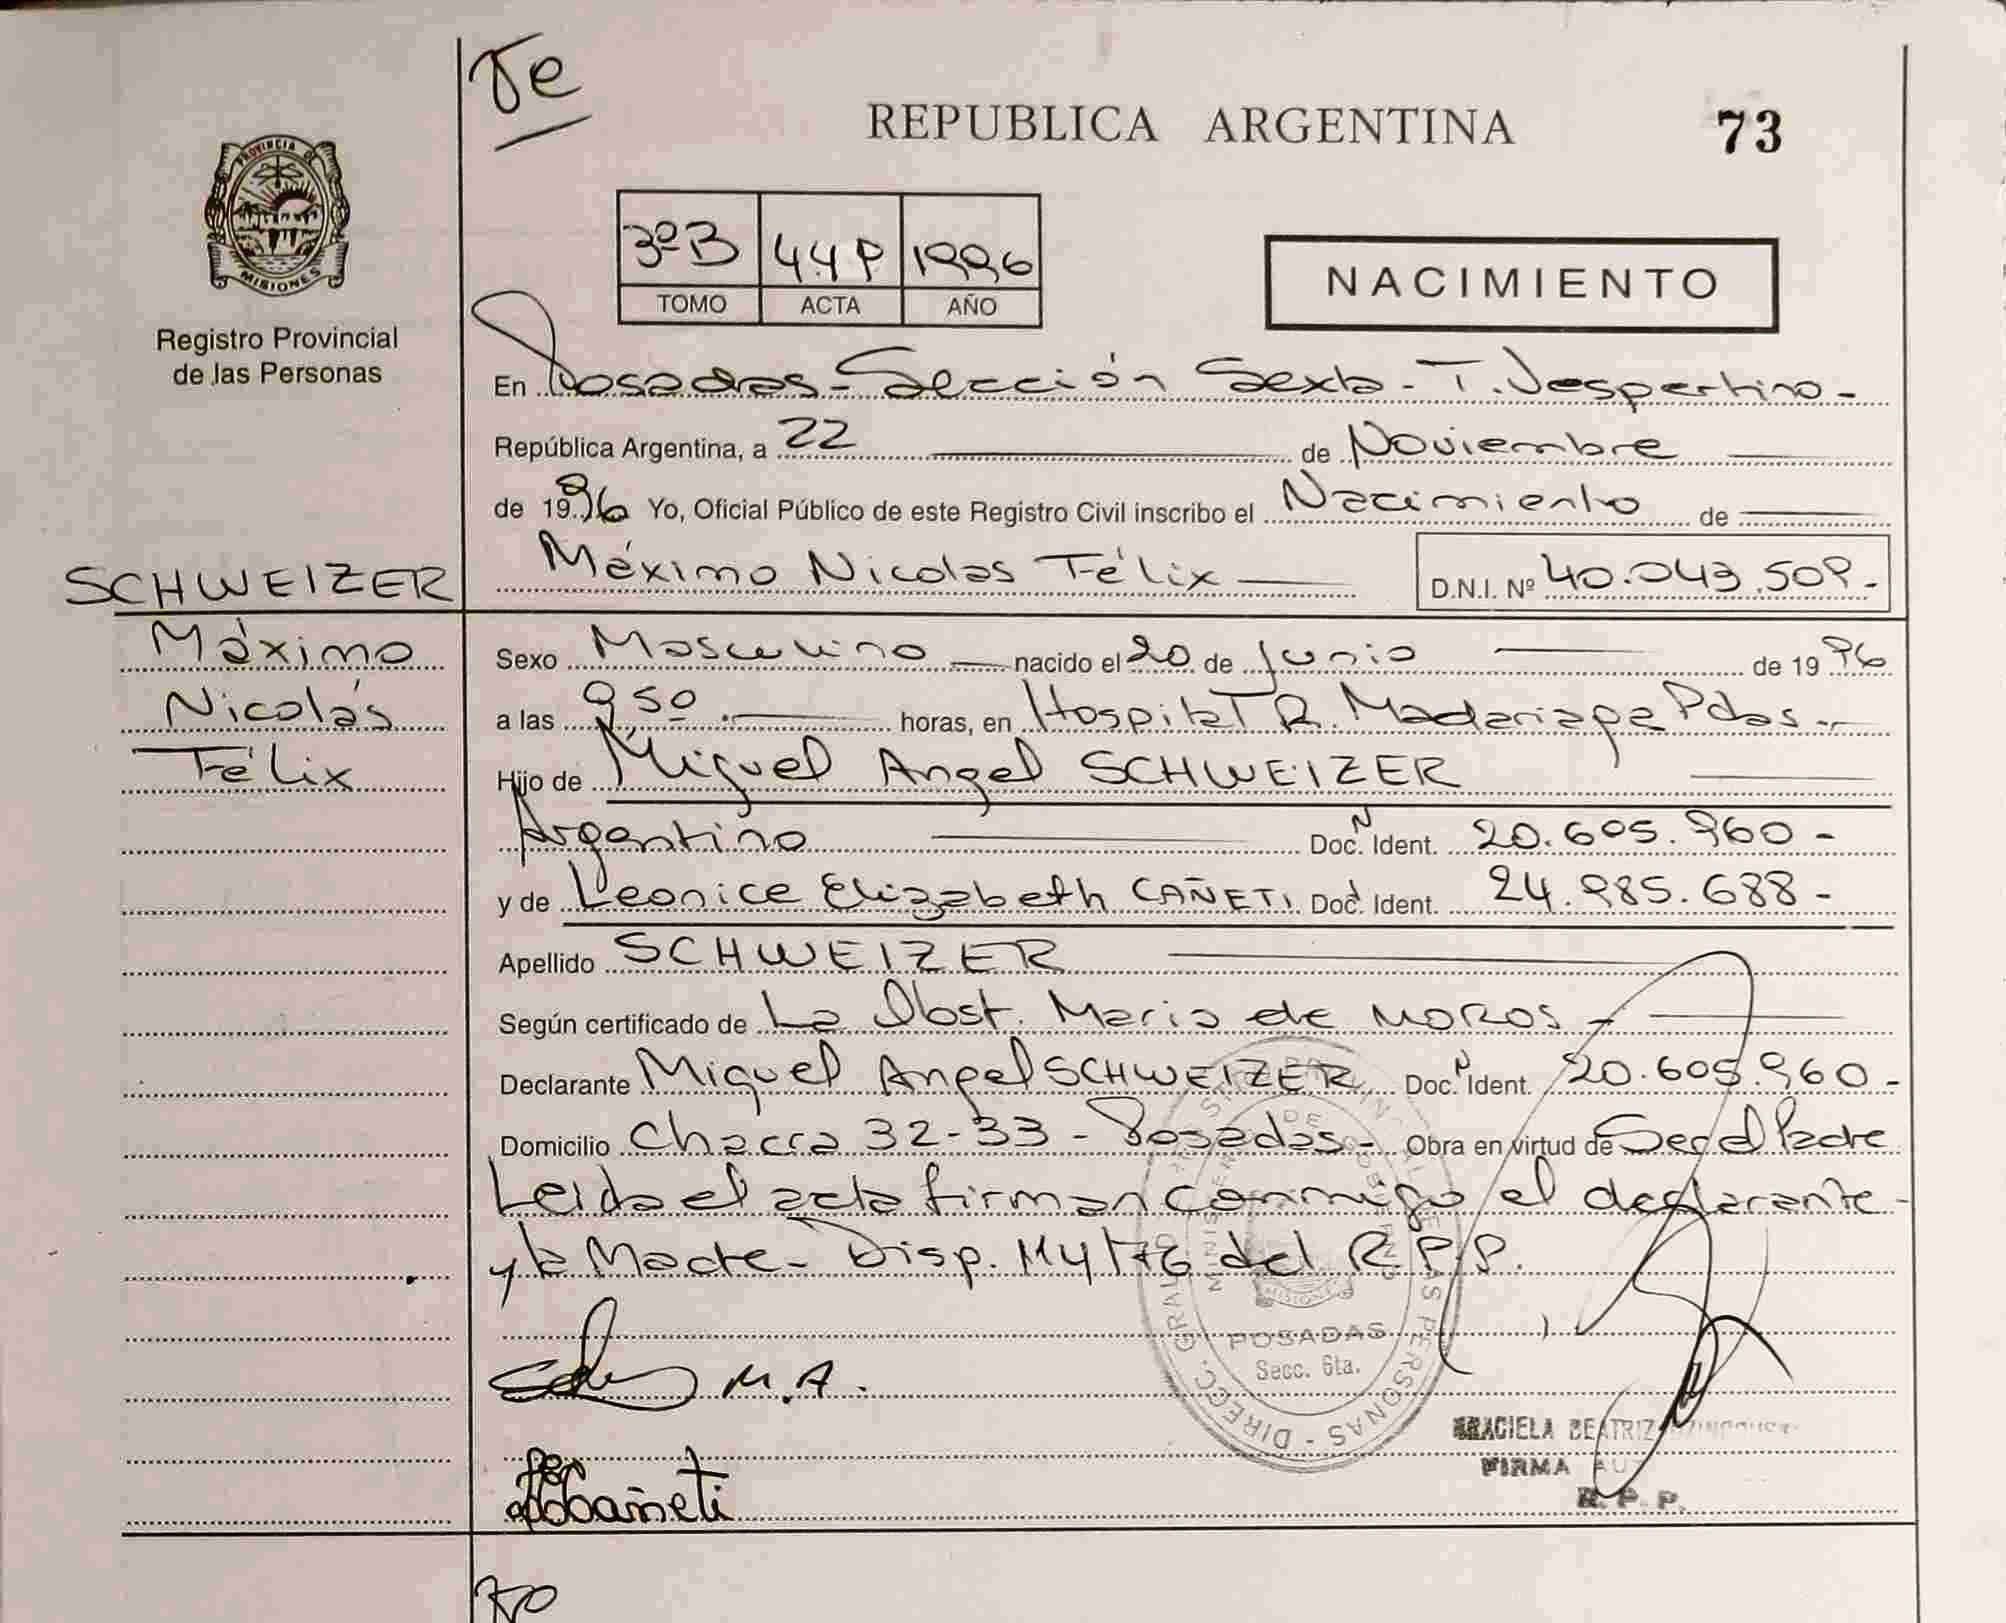 REPUBLICA ARGENTINA
73
PROVINCIA DE
MISIONES
Registro Provincial
de las Personas
3ºB 449 1996
TOMO ACTA AÑO
NACIMIENTO
En Posadas - Sección Sexta - T. Vespertino -
República Argentina, a 22 de Noviembre
de 1996 Yo, Oficial Público de este Registro Civil inscribo el Nacimiento de
Máximo Nicolas Félix D.N.I. Nº 40.043.509.-
SCHWEIZER
Máximo
Nicolás
Félix
Sexo Masculino nacido el 20 de Junio de 1996
a las 950 horas, en Hospital R. Madariaga Pdas -
Hijo de Miguel Angel SCHWEIZER
Argentino Doc. N Ident. 20.605.960 -
y de Leonice Elizabeth CAÑETI Doc. Ident. 24.985.688 -
Apellido SCHWEIZER
Según certificado de La Obst. Maria de MOROS -
Declarante Miguel Angel SCHWEIZER Doc. N Ident. 20.605.960 -
Domicilio Chacra 32-33 - Posadas - Obra en virtud de Ser el Padre
Leida el acta firman conmigo el declarante -
y la Madre - Disp. del R.P.P.
M.A.
Cañeti
POSADAS
Secc. 6ta.
GRACIELA BEATRIZ
FIRMA AUT
R.P.P.